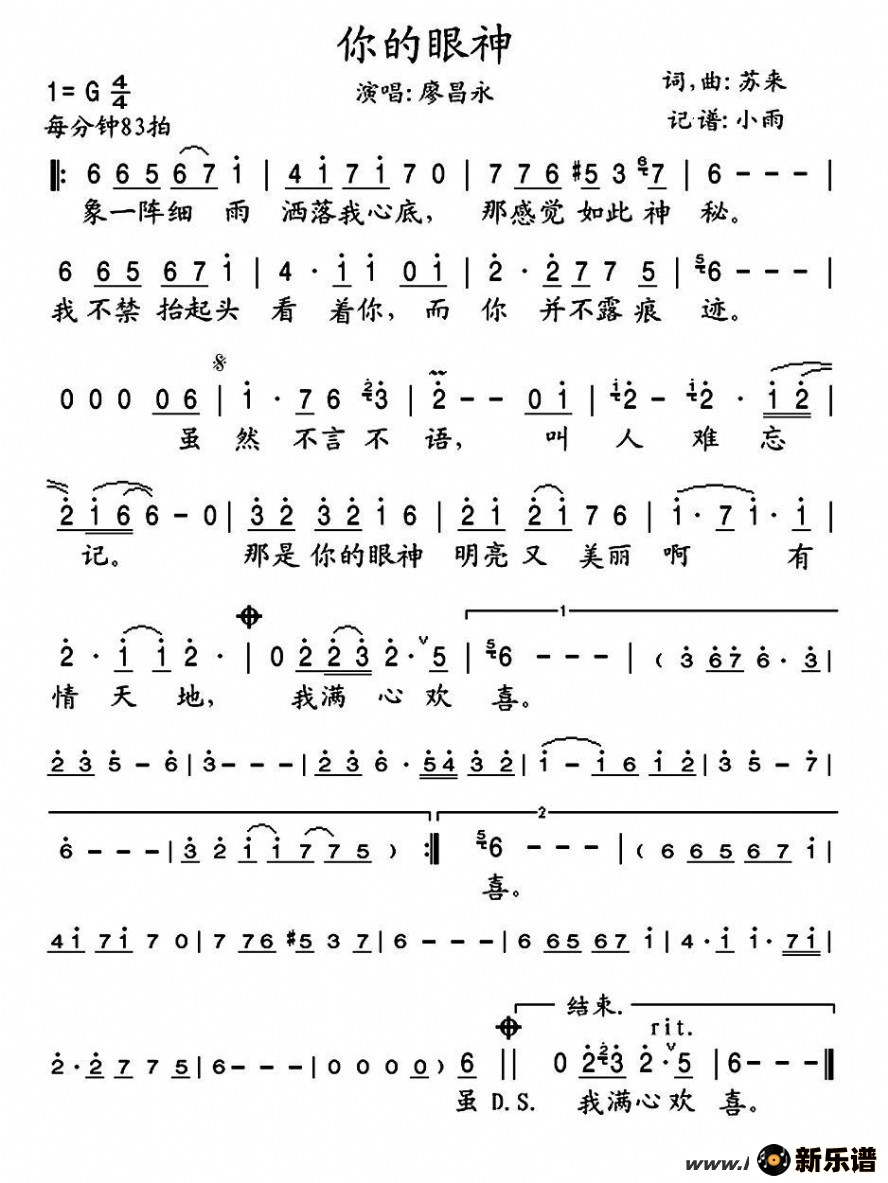 你的眼神
1= G 4/4 演唱: 廖昌永 词,曲: 苏来
每分钟83拍 记谱: 小雨
6 6 5 6 7 i | 4 i 7 i 7 0 | 7 7 6 #5 3 6 7 | 6 - - - |
象一阵细 雨 洒落我心底, 那感觉 如此神 秘。
6 6 5 6 7 i | 4 · i i 0 i | 2 · 2 7 7 5 | 5 6 - - - |
我 不禁 抬起头 看 着你, 而 你 并不露痕 迹。
0 0 0 0 6 | i · 7 6 2 3 | 2 - - 0 i | i 2 - i 2 · i 2 |
虽 然 不言不 语, 叫 人 难 忘
2 i 6 6 - 0 | 3 2 3 2 i 6 | 2 i 2 i 7 6 | i · 7 i · i |
记。 那是 你的眼神 明亮又 美丽 啊 有
1
2 · i i 2 · | 0 2 2 3 2 · 5 | 5 6 - - - | ( 3 6 7 6 · 3 |
情 天 地, 我满 心 欢 喜。
2 3 5 - 6 | 3 - - - | 2 3 6 · 5 4 3 2 | i - i 6 i 2 | 3 5 - 7 |
2
6 - - - | 3 2 i i 7 7 5 ) :| 5 6 - - - | ( 6 6 5 6 7 i |
喜。
4 i 7 i 7 0 | 7 7 6 #5 3 7 | 6 - - - | 6 6 5 6 7 i | 4 · i i · 7 i |
结束.
rit.
2 · 2 7 7 5 | 6 - - - | 0 0 0 0 ) 6 || 0 2 2 3 2 · 5 | 6 - - - ||
虽 D.S. 我满心欢 喜。
www.
新乐谱